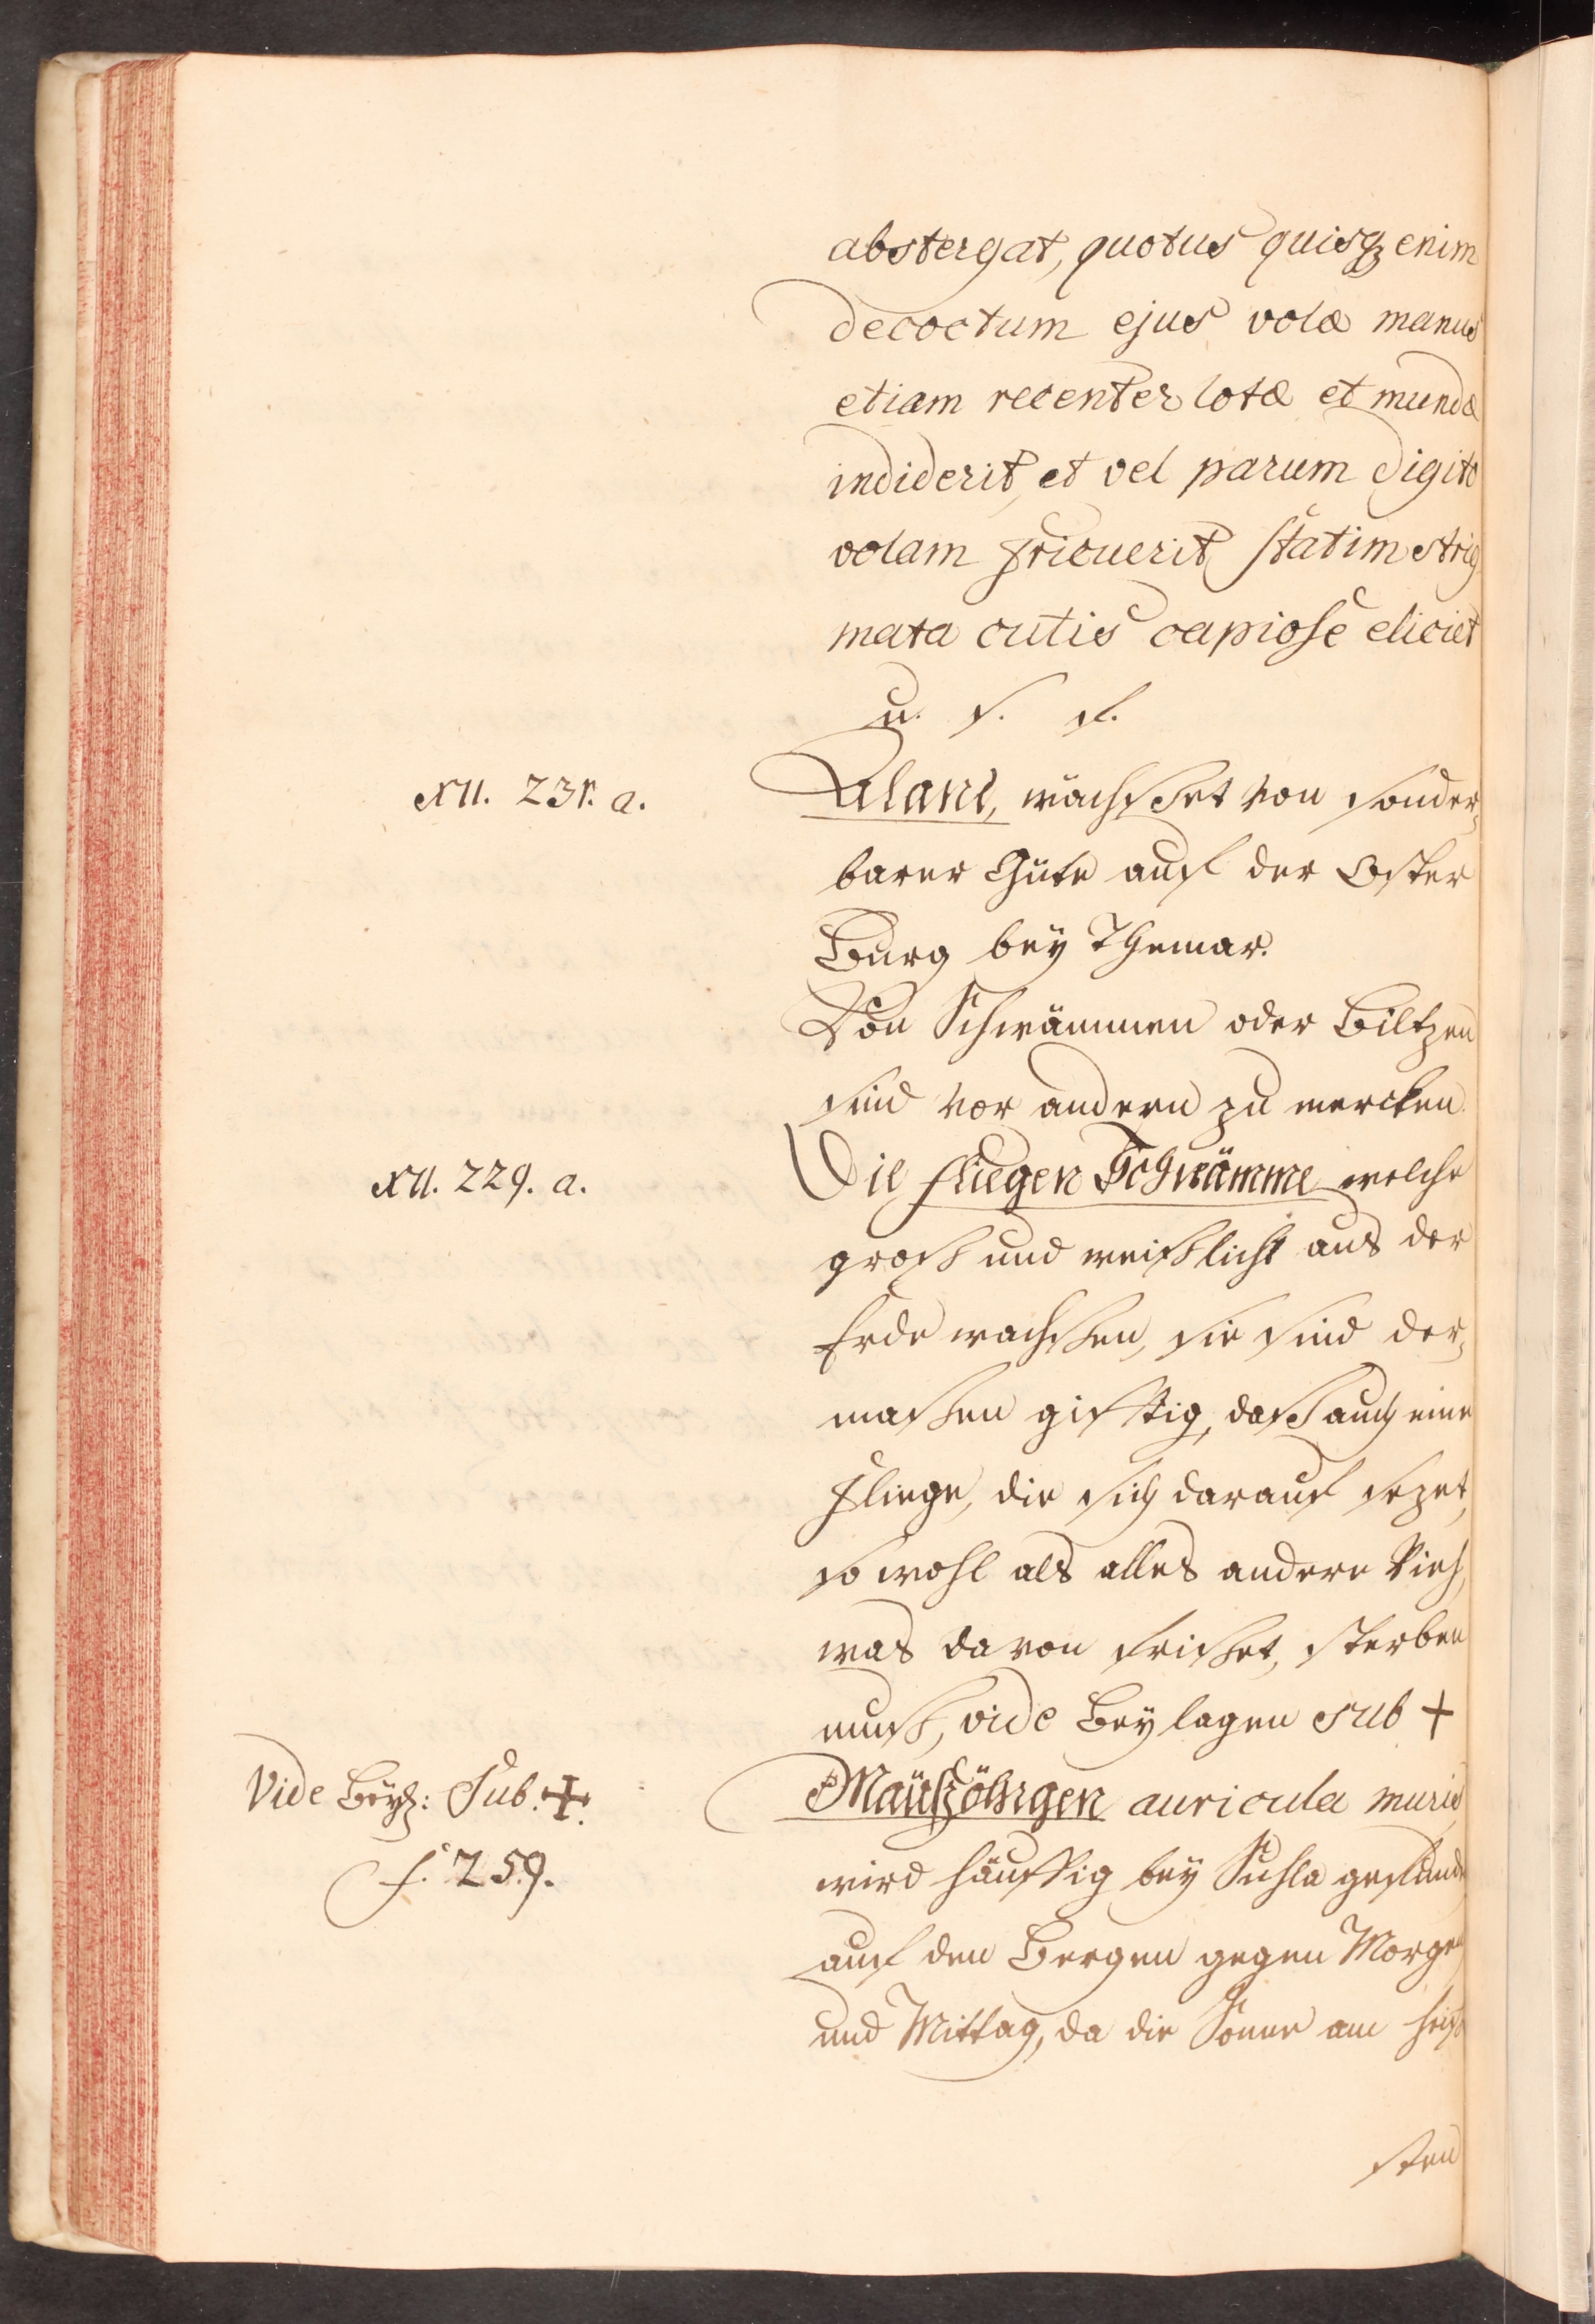 abstergat, quotus quisqꝫ enim
decoctum ejus volæ manus
etiam recenter lotæ et mundæ
indiderit, et vel parum digito
volam fricuerit, statim strig
mata cutis capiose eliciet
u. s. f.
XII. 231. a.
Alant, wächsset von sonder,
barer Güte auf der Oster
Burg bey Themar.
Von Schwämmen oder Biltzen
sind vor andern zu mercken.
XII. 229. a.
Die fliegen Schwämme welche
groß und weißlicht aus der
Erde wachsen, sie sind der,
maßen gifftig, daß auch eine
Fliege, die sich darauf sezet,
so wohl als alles andere Vieh,
was davon frißet, sterben
muß, vide Beylagen sub +
Vide Beyl: Sub. +.
f. 259.
Mäußöhrgen auricula muris
wird häuffig bey Suhla gefunde
auf den Bergen gegen Morgen
und Mittag, da die Sonne am heiß
sten